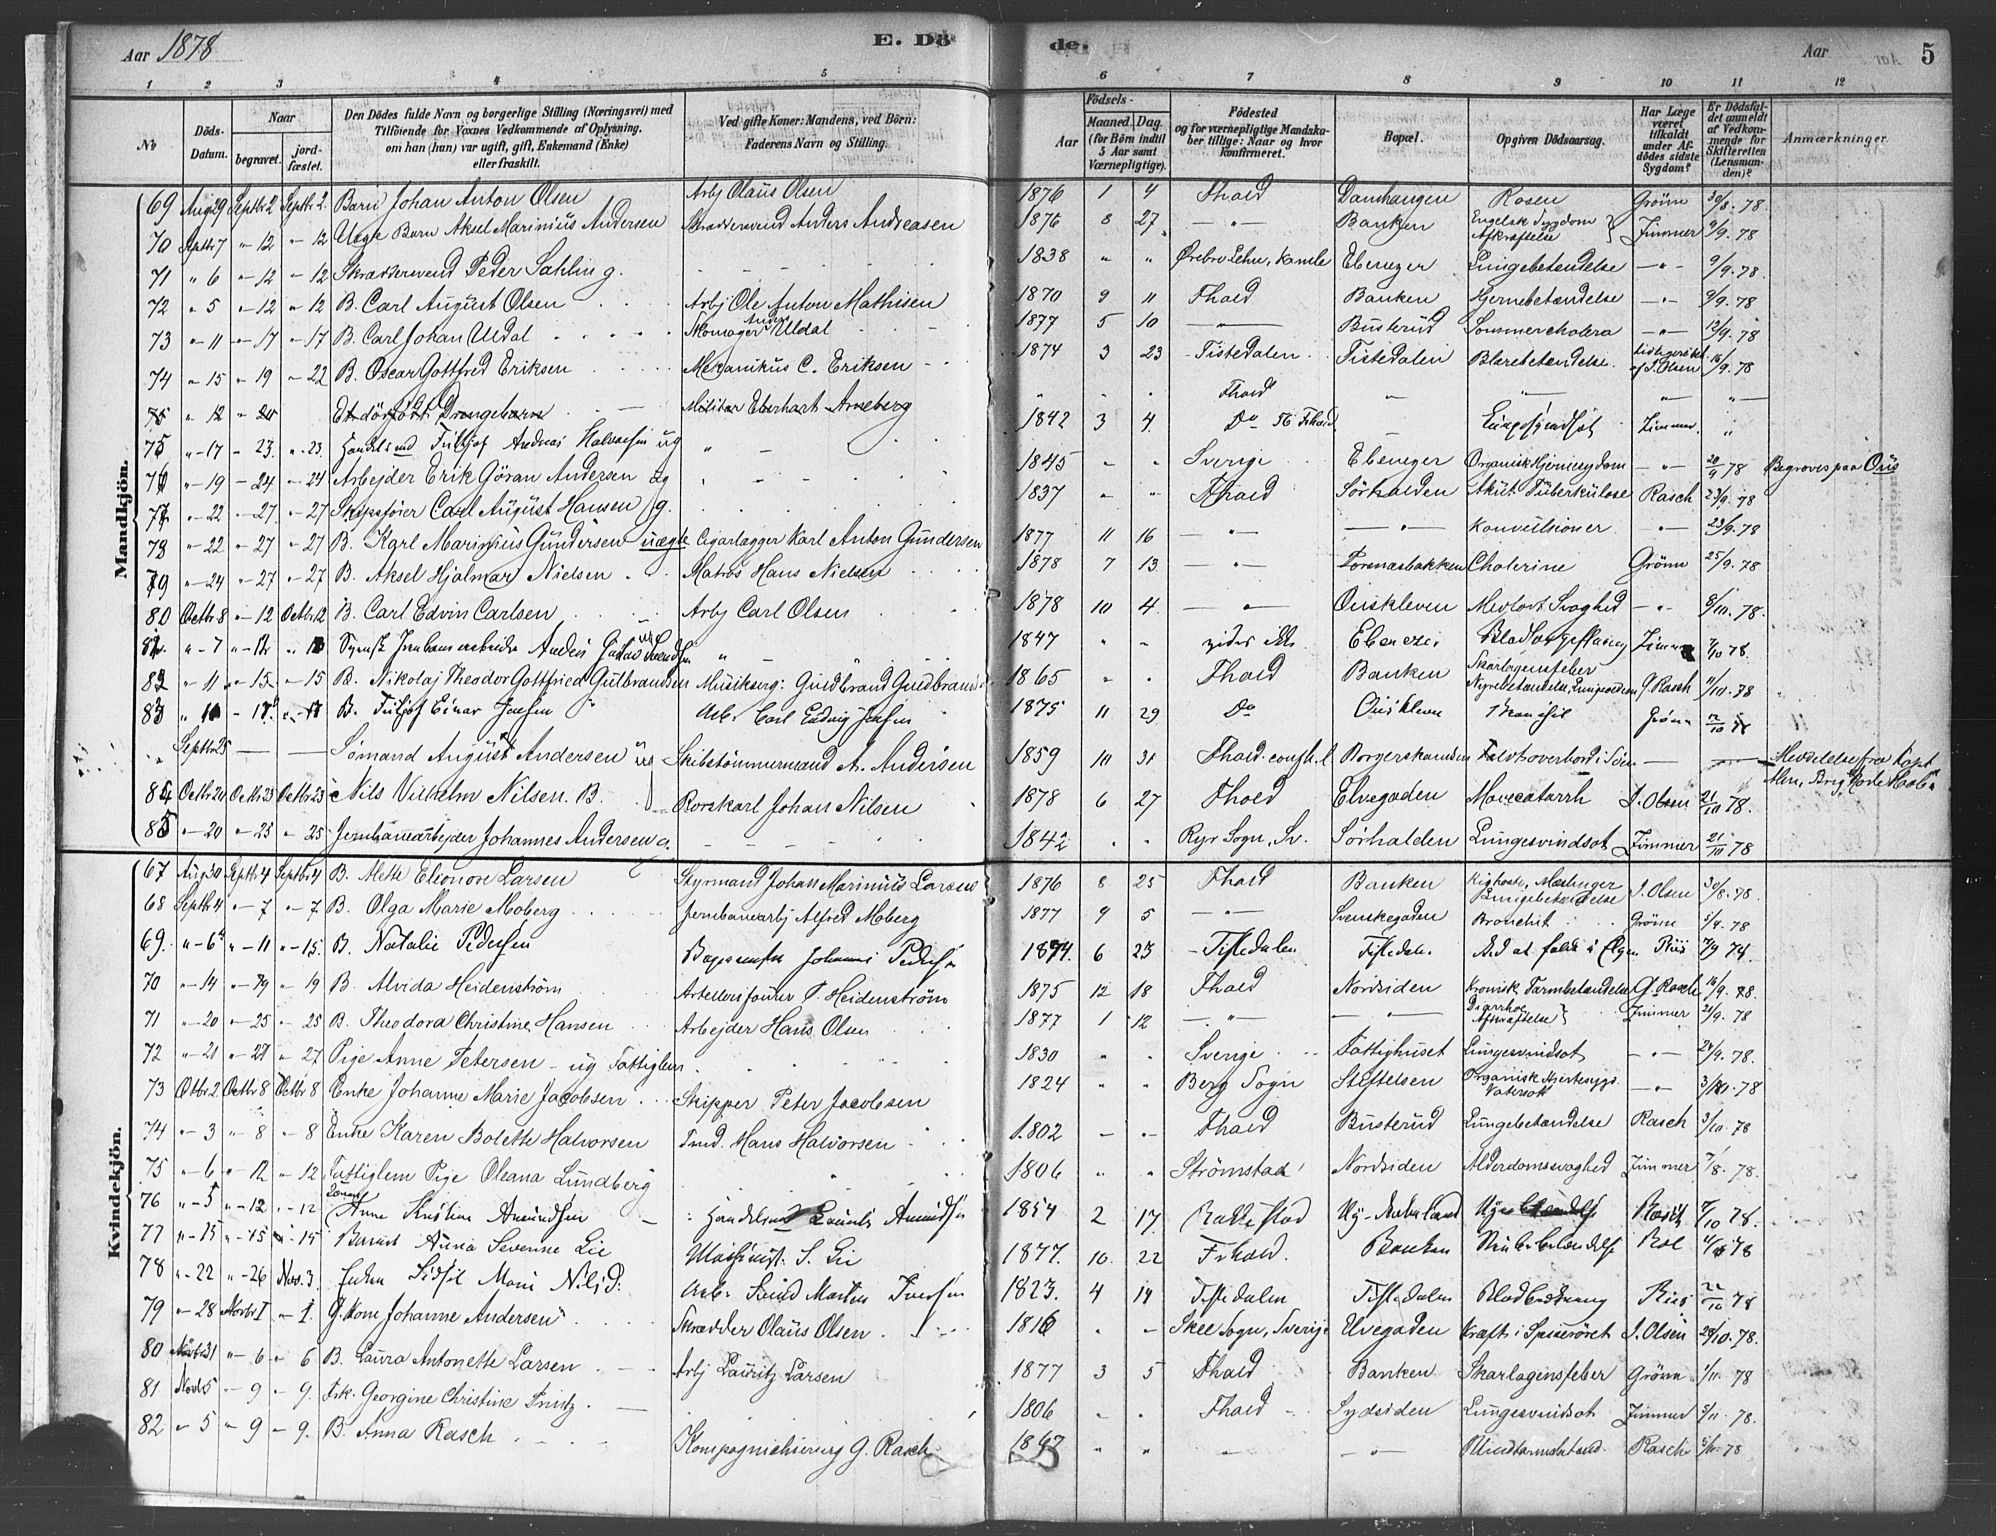 Aar 1878 E. Dö de. Aar 5
1 2 3 4 5 6 7 8 9 10 11 12
No Döds-Datum. Naar begravet. jordfæstet. Den Dödes fulde Navn og borgerlige Stilling (Næringsvei) med Tilföiende for Voxnes Vedkommende af Oplysning, om han (hun) var ugift, gift, Enkemand (Enke) eller fraskilt. Ved gifte Koner: Mandens, ved Börn: Faderens Navn og Stilling. Födsels- Aar Maaned. Dag. (for Börn indtil 5 Aar samt Værnepligtige). Födested og for værnepligtige Mandskaber tillige: Naar og hvor konfirmeret. Bopæl. Opgiven Dödsaarsag. Har Læge været tilkaldt under Afdödes sidste Sygdom? Er Dödsfaldet anmeldt af Vedkommende for Skifteretten (Lensmanden)? Anmærkninger.
Mandkjön.
69 Aug 29 Septbr 2 Septbr 2. Barn Johan Anton Olsen Arbj Olaus Olsen 1876 1 4 Fhald Damhaugen Rosen Grönn 30/8. 78.
70 Septbr 7 " 12 " 12 Uægte Barn Aksel Marinius Andersen Skræddersvend Anders Andreasen 1876 8 27 " Banken Engelsk Sygdom Afkræftelse Zimmer 9/9. 78
71 " 6 " 12 " 12 Skræddersvend Peder Sahlin g. 1838 " " Örebro Lehn, Kumle Ebenezer Lungebetændelse " 9/9. 78.
72 " 5 " 12 " 12 B. Carl August Olsen Arbj Ole Anton Mathisen 1870 9 11 Fhald Banken Hjernebetændelse " 9/9. 78
73 " 11 " 17 " 17 B. Carl Johan Uldal Skomager Anders Uldal 1877 5 10 " Busterud Sommercholera " 12/9. 78
74 " 15 " 19 " 22 B. Oscar Gottfred Eriksen Mekanikus C. Eriksen 1874 3 23 Tistedalen Tistedalen Blærebetændelse. af J. Olsen 16/9. 78
75 " 12 " 20 Et dödfödt Drengebarn Militær Eberhart Arneberg " " " Fhald " " " "
75 " 17 " 23. " 23. Handelsmd Fritjof Andreas Halvorsen ug " 1842 3 4 Do 56 Frhald " Lungesvindsot Zimmer. "
76 " 19 " 24 " 24 Arbejder Erik Göran Andersen ug 1845 " " Sverige Ebenezer Organisk Hjernesygdom " 20/9 78 Begraves paa Öris
77 " 22 " 27 " 27 Skipsföier Carl August Hansen g. 1837 " " Fhald Sörhalden Akut Tuberkulose Rasch 23/9. 78
78 " 22 " 27 " 27 B. Karl Marinius Gundersen uægte Cigarlagger Karl Anton Gundersen 1877 11 16 " " Konvulsioner " 23/9. 78
79 " 24 " 27 " 27 B. Aksel Hjalmar Nielsen Matros Hans Nielsen 1878 7 13 " Torsnæsbakken Cholerine Grönn 25/9. 78
80 Octbr 8 " 12 Octbr 12 B. Carl Edvin Carlsen Arbj Carl Olsen 1878 10 4. " Ouskleven Medfödt Svaghed " 8/10. 78.
81 " 7 " 12 " 12 Svensk Jernbanearbeider Anders Gustav Svendsen ug " 1847 " " Ebenezer Zimmer 7/10 78.
82 " 11 " 15 " 15 B. Nikolaj Theodor Gottfried Gulbrandsen Musikserg: Guldbrand Guldbrands 1865 " " Fhald Banken Skarlagensfeber Nyrebetændelse, Lungeödem G. Rasch 11/10. 78
83 " 11 " 17 " 17 B. Fritjof Einar Jensen Arb. Carl Ludvig Jensen 1875 11 29 Do Ouskleven Grönn 12/10 78
" Septbr 25 — — Sömand August Andersen ug Skibstömmermand A. Andersen 1859 10 31 Fhald. Borgerskansen Faldt overbord i Söen — Meddelelse fra Kapt
84 Octbr 20 Octbr 23 Octbr 23 Nils Vilhelm Nilsen. B. Rorskarl Johan Nilsen 1878 6 27 Fhald Elvegaden Mavecatarrh J. Olsen 21/10 78.
85 " 20 " 25 " 25 Jernbanearbejder Johannes Andersen g. 1842 " " Ryr Sogn, Sv. Sörhalden Lungesvindsot Zimmer 21/10 78
Kvindekjön.
67 Aug 30 Septbr 4 Septbr 4 B. Mette Eleonore Larsen Styrmand Johan Marinius Larsen 1876 8 25 Fhald Banken Kighoste, Mæslinger Lungebetændelse J. Olsen 30/8. 78.
68 Septbr 4 " 7 " 7 B. Olga Marie Moberg Jernbanearbj Alfred Moberg 1877 9 5 " Svenskegaden Bronchit Grönn 5/9. 78
69. " 6 " 11 " 15. B. Natalie Pedersen Johannes Pedersen 1874. 6 23 Tistedalen Tistedalen Ved at falde i Elven Riis 7/9 78.
70 " 14 " 19 " 19 B. Alvida Heidenström Artellerifourer P. Heidenström 1875 12 18 Fhald Nordsiden Kronisk Tarmbetændelse G. Rasch 16/9. 78.
71 " 20 " 25 " 25 B. Theodora Christine Hansen Arbejder Hans Olsen 1877 1 12 " " Diarrhoe Afkræftelse Zimmer 21/9. 78
72 " 21 " 27 " 27 Pige Anne Petersen ug Fattiglem 1830 " " Sverige Fattighuset Lungesvindsot " 24/9. 78.
73 Octbr 2 Octbr 8 Octbr 8 Enke Johanne Marie Jacobsen Skipper Peter Jacobsen 1824 " " Berg Sogn Steftelsen Organisk Hjertesygd. Vatersott " 3/10. 78
74 " 3 " 8 " 8 Enke Karen Bolette Halvorsen Hans Halvorsen 1802 " " Fhald Busterud Lungebetændelse Rasch 3/10. 78
75 " 6 " 12 " 12 Fattiglem Pige Oleana Lundberg 1806 " " Strömstad Nordsiden Alderdomssvaghed Zimmer 7/8. 78.
76 " 5 " 12. " 12 Anne Kristine Amundsen Handelsmd Laurits Amundsen 1854 2 17. Rakkestad Rasch 7/10 78.
77 " 15 " 15 " 15 Barnet Anna Severine Lie Maskinist. S. Lie 1877. 10. 22 Frhald. Banken 11/10 78
78 " 22 " 26 Nov. 3. Enken Sidsil Marie Nilsd: Arb. Svend Martin Iversen 1823. 4 14 Tistedalen Tistedalen Riis 22/10 78
79 " 28 Novbr 1 " 1. G. Kone Johanne Andersen Skrædder Olaus Olsen 1816 " " Skee Sogn, Sverige Elvegaden Kræft i Spiserøret J. Olsen 28/10. 78.
80 Novbr 31 " 6 " 6 B. Laura Antonette Larsen Arbj Lauritz Larsen 1877 3 5 Fhald Banken Skarlagensfeber Grönn 1/11. 78
81 Novbr 5 " 9 " 9. Frk. Georgine Christine Printz. 1806 " " Fhald Sydsiden Lungesvindsot Zimmer 5/11. 78.
82 " 5 " 9 " 9. B. Anna Rasch Kompagnichirurg G. Rasch 1867 " " " " Rasch 5/11. 78